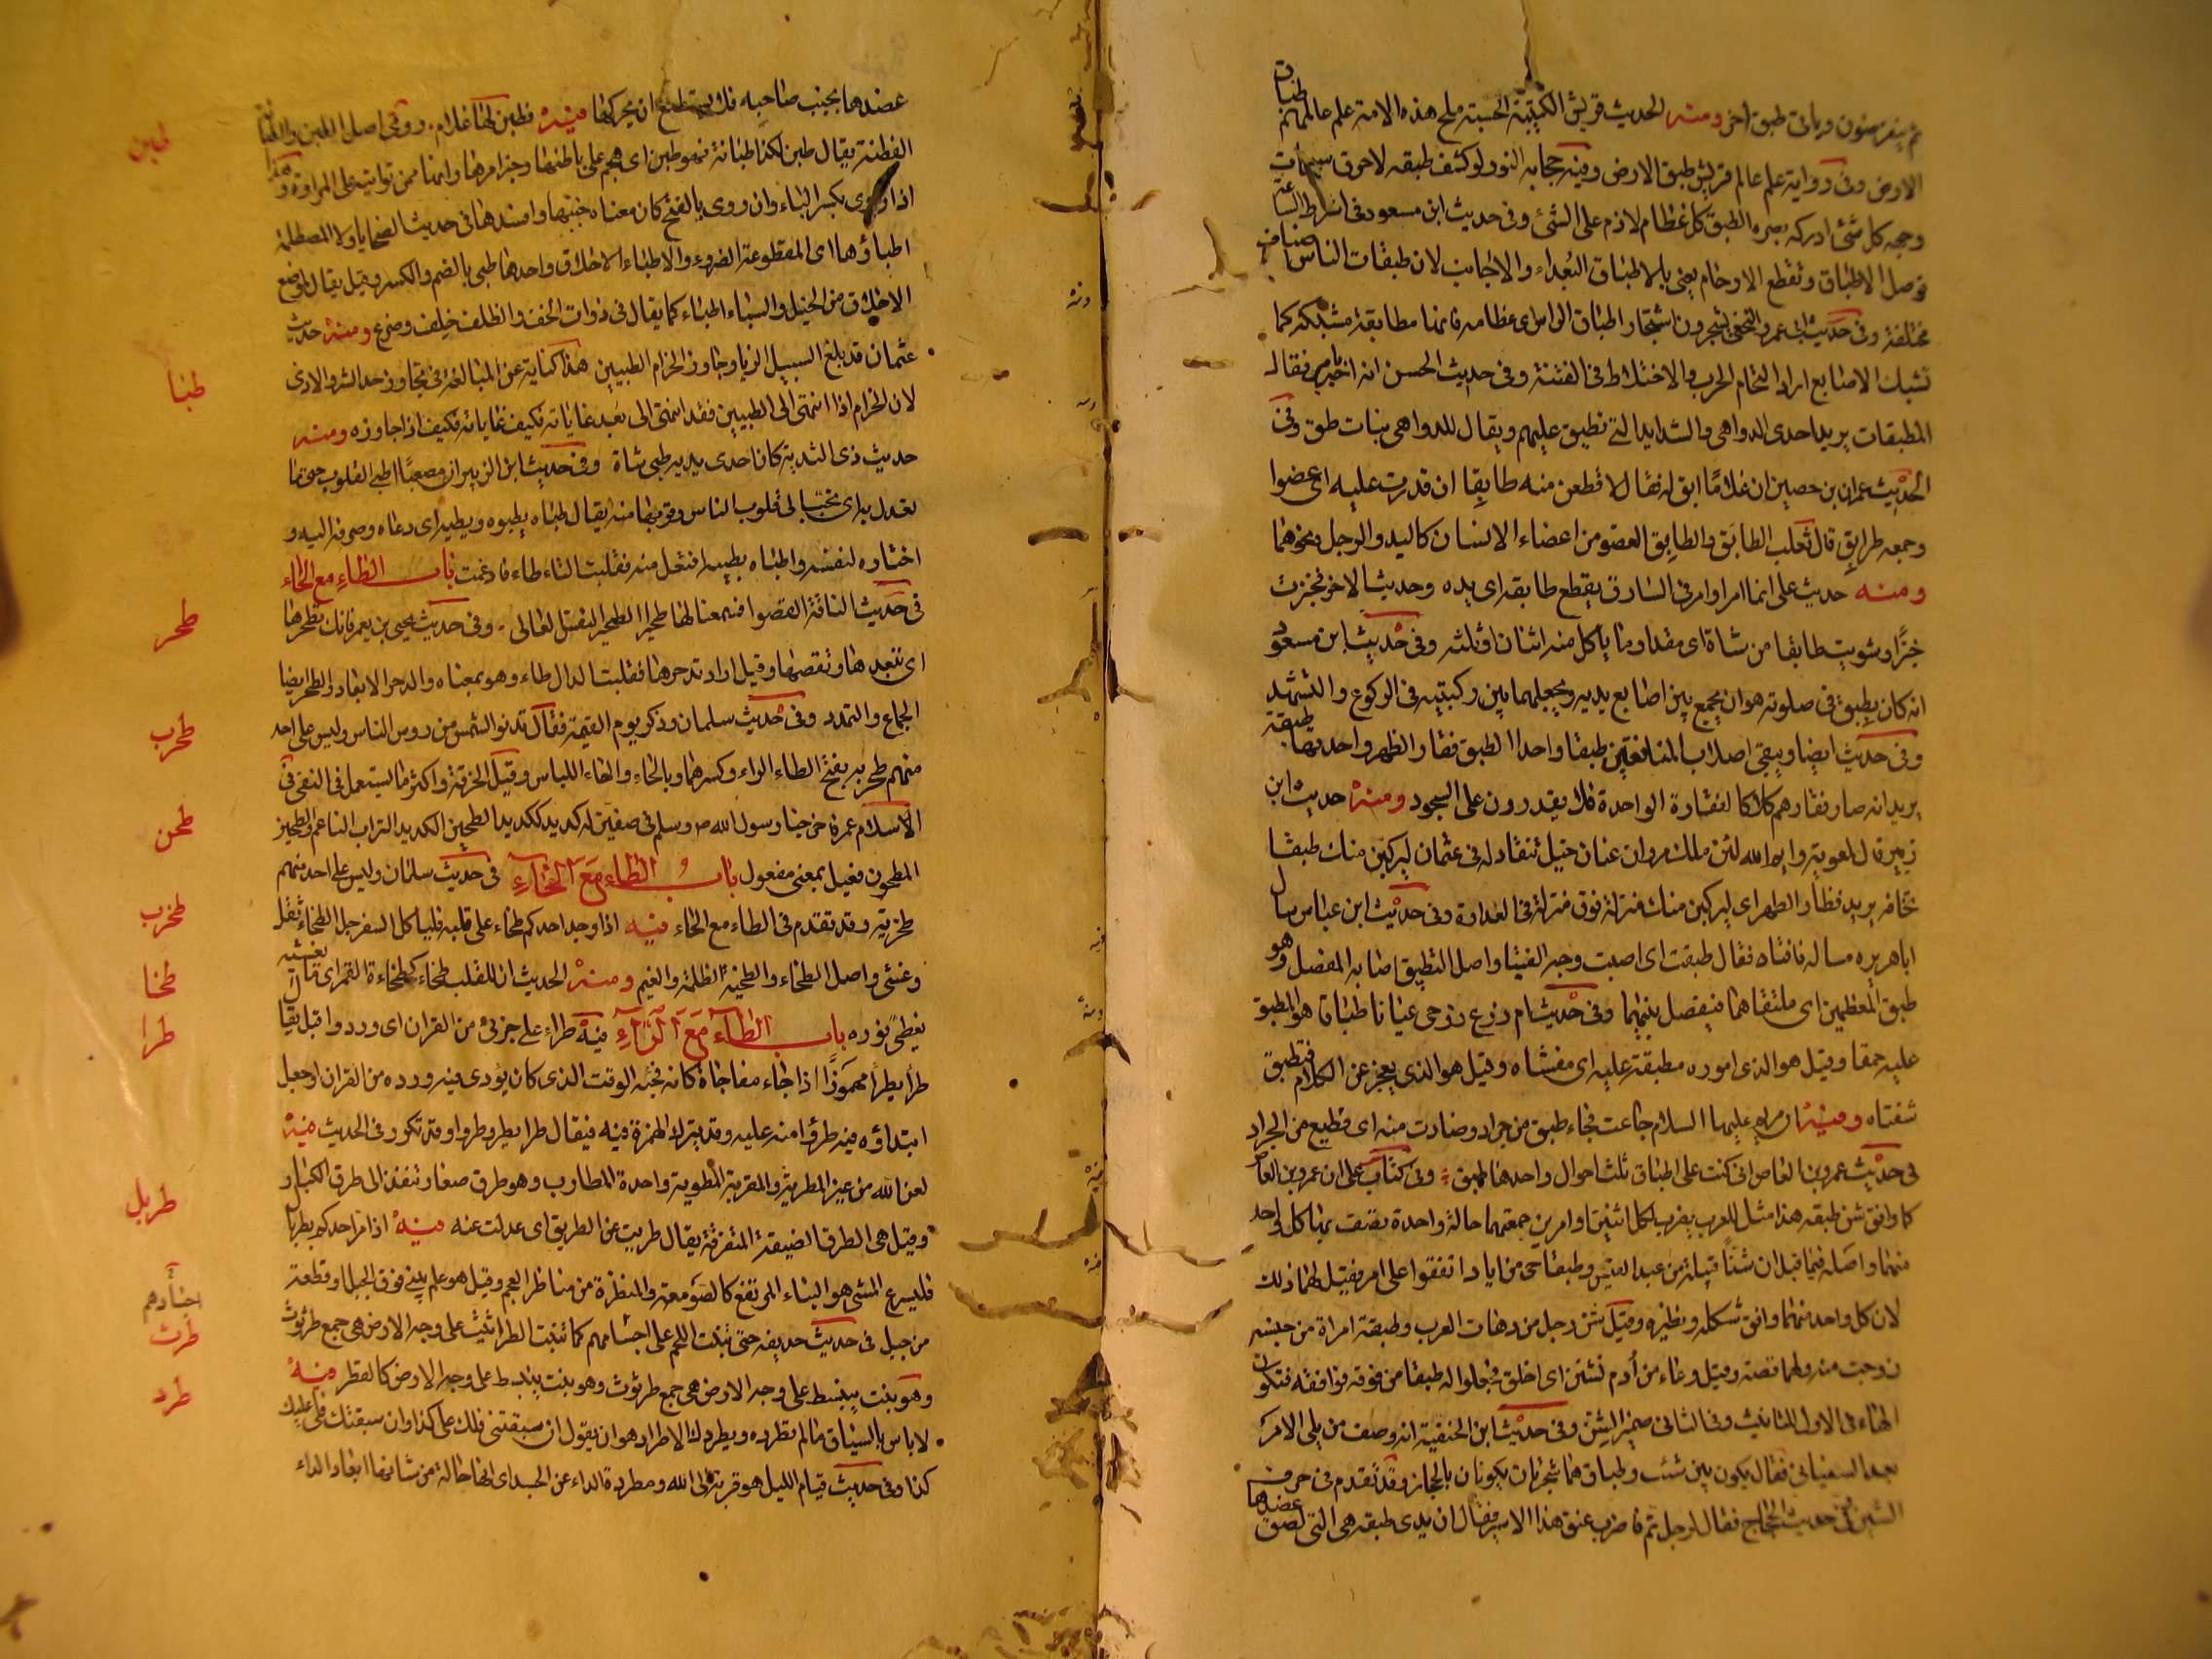 ثم ينقرضون ويأتي طبق آخر ومنه الحديث قريش الكتبة الحسبة ملح هذه الامة علم عالمهم طباق
الارض وفي رواية علم عالم قريش طبق الارض وفيه حجابه النور لو كشف طبقه لاحرق سبحات
وجهه كل شئ ادركه بصره الطبق كل غطاء لازم على الشئ وفي حديث ابن مسعود في اشراط الساعة
توصل الاطباق وتقطع الارحام يعني بالاطباق البعداء والاجانب لان طبقات الناس اصناف
مختلفة وفي حديث ابي عمرو النخعي يشتجرون اشتجار اطباق الراس اي عظامه فانها مطابقة مشتبكة كما
تشبك الاصابع اراد التحام الحرب والاختلاط في الفتنة وفي حديث الحسن انه اخبر بامر فقال
المطبقات يريد احدى الدواهي والشدايد التي تطبق عليهم ويقال للدواهي بنات طبق وفي
الحديث عمران بن حصين ان غلاما ابق له فقال لاقطعن منه طابقا ان قدرت عليه اي عضوا
وجمعه طوابق قال ثعلب الطابق والطابق العضو من اعضاء الانسان كاليد والرجل ونحوهما
ومنه حديث علي انما امرا وامر في السارق بقطع طابقه اي يده وحديثه الاخر فخبزت
خبزا وشويت طابقا من شاة اي مقدار ما ياكل منه اثنان او ثلثه وفي حديث ابن مسعود
انه كان يطبق في صلوته هو ان يجمع بين اصابع يديه ويجعلهما بين ركبتيه في الركوع والتشهد
وفي حديثه ايضا ويبقى اصلاب المنافقين طبقا واحدا الطبق فقار الظهر واحدتها طبقة
يريد انه صار فقارهم كله كالفقارة الواحدة فلا يقدرون على السجود ومنه حديث ابن
زبير قال لمعوية وايم الله لئن ملك مروان عنان خيل تنقاد له في عثمان ليركبن منك طبقا
تخافه يريد فقار الظهر اي ليركبن منك منزلة فوق منزلة في العداوة وفي حديث ابن عباس سال
ابا هريره مسالة فافتاه فقال طبقت اي اصبت وجه الفتيا واصل التطبيق اصابة المفصل وهو
طبق العظمين اي ملتقاهما فيفصل بينهما وفي حديث ام زرع زوجي عيايا طباقا هو المطبق
عليه حمقا وقيل هو الذي اموره مطبقة عليه اي مغشاه وقيل هو الذي يعجز عن الكلام فتطبق
شفتاه وفيه ان مريم عليها السلام جاعت فجاء طبق من جراد فصادت منه اي قطيع من الجراد
في حديث عمرو بن العاص اني كنت على اطباق ثلث احوال واحدها طبق وفي كتاب علي ان عمرو بن العاص
كما وافق شن طبقه هذا مثل للعرب يضرب لكل اثنين او امرين جمعتهما حالة واحدة يتصف بها كل واحد
منهما واصله فيما قيل ان شنا قبيلة من عبد القيس وطبقا حي من اياد اتفقوا على امر فقيل لهما ذلك
لان كل واحد منهما وافق شكله ونظيره وقيل شن رجل من دهات العرب وطبقة امراة من جنسه
زوجت منه ولهما قصة وقيل وعاء من ادم تشنن اي اخلق فجعلوا له طبقا من فوقه فوافقه فتكون
الهاء في الاول للتانيث وفي الثاني ضمير الشن وفي حديث ابن الحنفية انه وصف من يلي الامر
بعد السفياني فقال يكون بين شث وطباق هما شجرتان يكونان بالحجاز وقد تقدم في حرف
الشين في حديث الحجاج فقال لرجل قم فاضرب عنق هذا الاسير فقال ان يدي طبقه هي التي لصق عضدها
عضدها بجنب صاحبه فلا يستطيع ان يحركها فيه فطبن لها غلام وفي اصل الطبن والطبانة
الفطنة يقال طبن لكذا طبانة فهو طبن اي هجم على باطنها وخبر امرها وانها ممن تواتيه على المراودة وهذا
اذا روي بكسر الباء وان روي بالفتح كان معناه خببها وافسدها في حديث الضحايا ولا المصطلمة
اطباؤها اي المقطوعة الضروع والاطباء الاخلاف واحدها طبي بالضم والكسر وقيل يقال لموضع
الاخلاف من الخيل والسباع اطباء كما يقال في ذوات الخف والظلف خلف وضرع ومنه حديث
عثمان قد بلغ السيل الزبا وجاوز الحزام الطبيين هذا كناية عن المبالغة في تجاوز حد الشر والاذى
لان الحزام اذا انتهى الى الطبيين فقد انتهى الى بعد غاياته فكيف غاياته فكيف اذا جاوزه ومنه
حديث ذي الثدية كان احدى يديه طبي شاة وفي حديث ابن الزبير ان مصعبا اطبى القلوب حتى ما
تعدل به اي تحبب الى قلوب الناس وقربها منه يقال طباه يطبوه ويطبيه اي دعاه وصرفه اليه و
اختاره لنفسه واطباه يطبيه افتعل منه فقلبت التاء طاء فادغمت باب الطاء مع الحاء
في حديث الناقة القصوا فسمعنا لها طحيرا الطحير النفس العالي وفي حديث يحيى بن يعمر فانك تطحرها
اي تبعدها وتقصيها وقيل اراد تدحرها فقلبت الدال طاء وهو بمعناه والدحر الابعاد والطحر ايضا
الجماع والتمدد وفي حديث سلمان وذكر يوم القيمة فقال تدنو الشمس من روس الناس وليس على احد
منهم طحربه بفتح الطاء الراء وكسرهما وبالحاء والخاء اللباس وقيل الخرقة واكثر ما تستعمل في النفي في
الاسلام عمر فاخرجنا رسول الله ص وسلم في صفين له كديد ككديد الطحين الكديد التراب الناعم والطحين
المطحون فعيل بمعنى مفعول باب الطاء مع الخاء في حديث سلمان وليس على احد منهم
طخربة وقد تقدم في الطاء مع الحاء فيه اذا وجد احدكم طخاء على قلبه فلياكل السفرجل الطخاء ثقل
وغشي واصل الطخاء والطخية الظلمة والغيم ومنه الحديث ان للقلب طخاء كطخاءة القمر اي ما يغشيه
يغطي نوره باب الطاء مع الراء فيه طراء علي جزئي من القران اي ورد واقبل يقال
طرأ يطرأ مهموزا اذا جاء مفاجاة كانه فجئه الوقت الذي كان يؤدي فيه ورده من القران او جعل
ابتداؤه فيه طرؤا منه عليه وقد يترك الهمزة فيه فيقال طرا يطرو طروا وقد تكرر في الحديث فيه
لعن الله من غير المطربة والمقربة المطربة واحدة المطارب وهو طرق صغار تنفذ الى طرق الكبار و
وقيل هي الطرق الضيقة المتفرقة يقال طربت عن الطريق اي عدلت عنه فيه اذا مر احدكم بطربال
فليسرع المشي هو البناء المرتفع كالصومعة والمنظرة من مناظر العجم وقيل هو علم يبنى فوق الجبل او قطعة
من جبل في حديث حديفه حتى تنبت اللحم على اجسامهم كما تنبت الطراثيث على وجه الارض هي جمع طرثوث
وهو نبت ينبسط على وجه الارض هي جمع طرثوث وهو نبت ينبسط على وجه الارض كالفطر فيه
لا باس بالسباق مالم تطرده ويطردك الاطراد هو ان يقول ان سبقتني فلك علي كذا وان سبقتك فلي عليك
كذا وفي حديث قيام الليل هو قربة الى الله ومطردة الداء عن الجسد اي انها حالة من شانها ابعاد الداء
طبن
طبا
طحر
طحرب
طحن
طخرب
طخا
طرا
طربل
اجسادهم
طرث
طرد